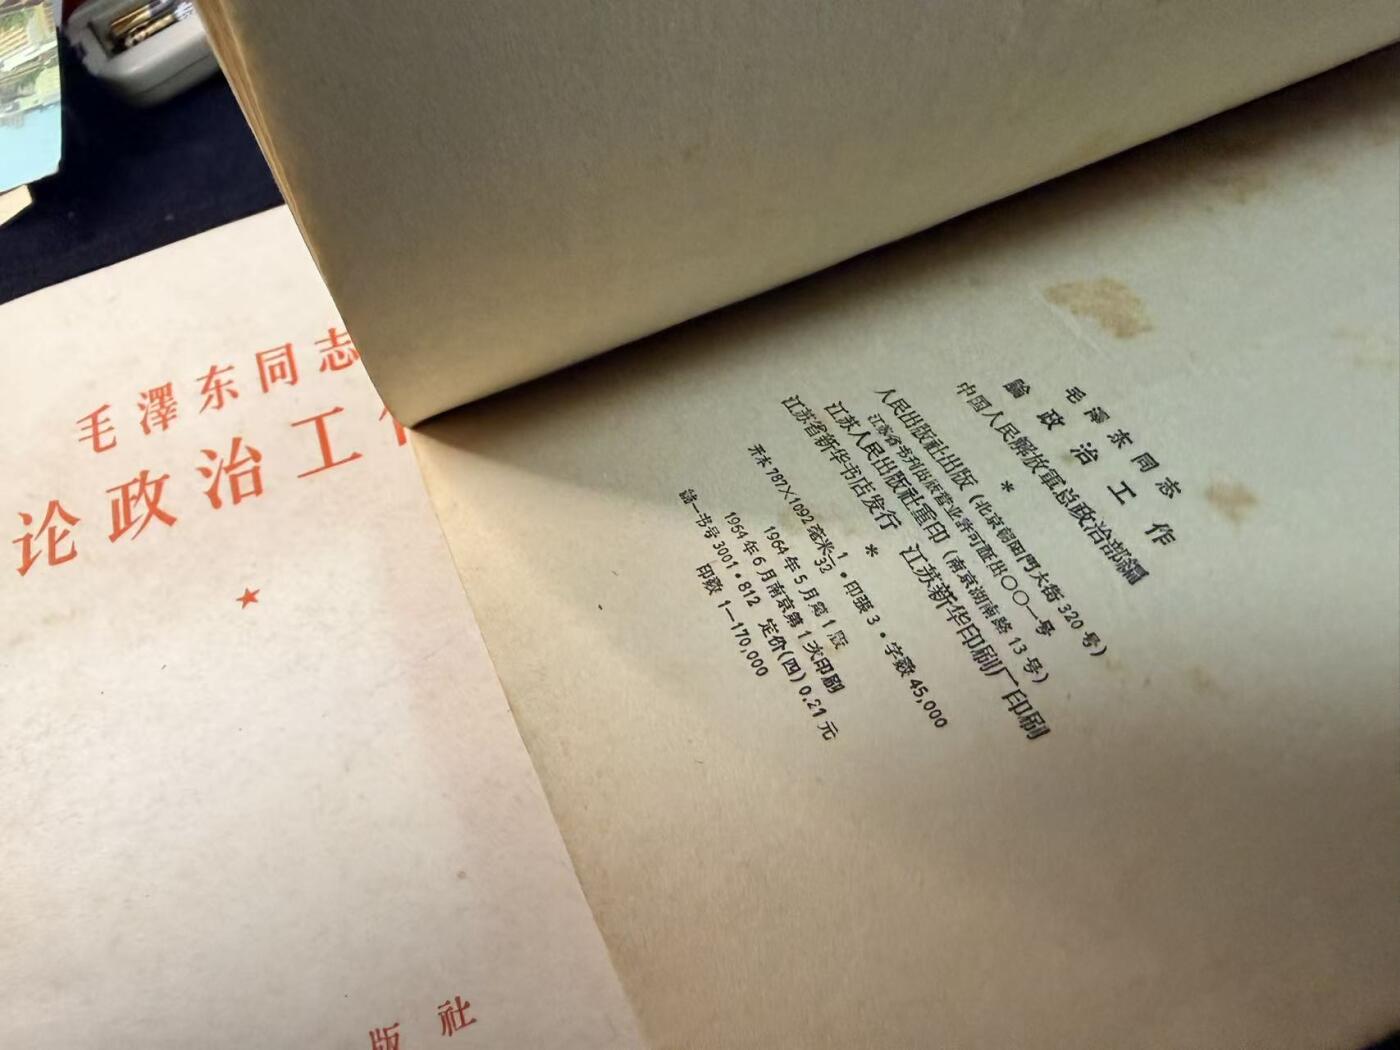 毛澤东同志
论政治工作
版社
毛澤东同志
論政治工作
中国人民解放軍总政治部編
*
人民出版社出版（北京朝阳門大街320号）
江苏省书刊出版营业許可証出〇〇一号
江苏人民出版社重印（南京湖南路13号）
江苏省新华书店发行 江苏新华印刷厂印刷
*
开本787×1092毫米1/32·印張3·字数45,000
1964年5月第1版
1964年6月南京第1次印刷
統一书号3001·812 定价(四)0.21元
印数1—170,000